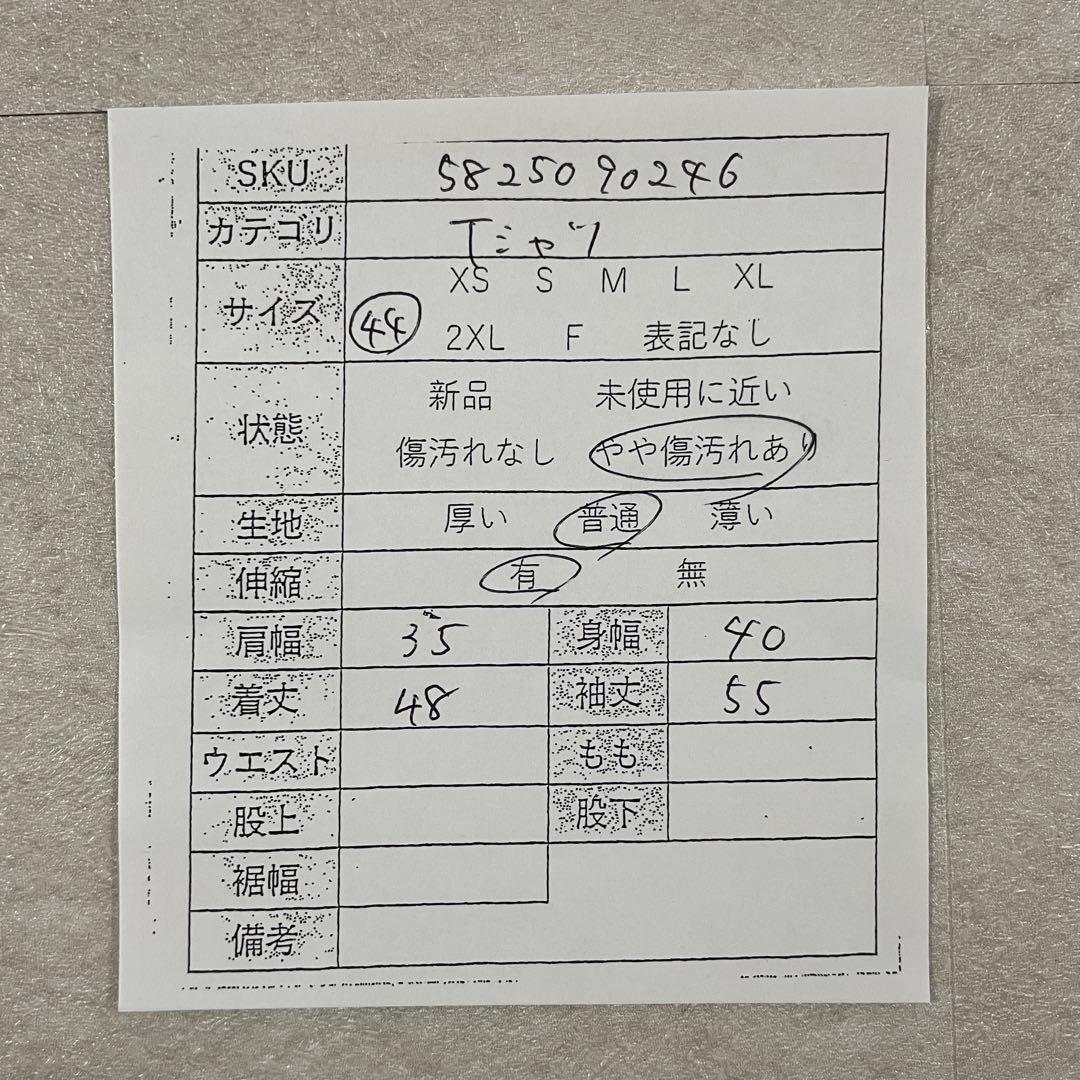 SKU 5825090246
カテゴリ Tシャツ
XS S M L XL
サイズ 44
2XL F 表記なし
新品 未使用に近い
状態
傷汚れなし やや傷汚れあり
生地 厚い 普通 薄い
伸縮 有 無
肩幅 35 身幅 40
着丈 48 袖丈 55
ウエスト もも
股上 股下
裾幅
備考